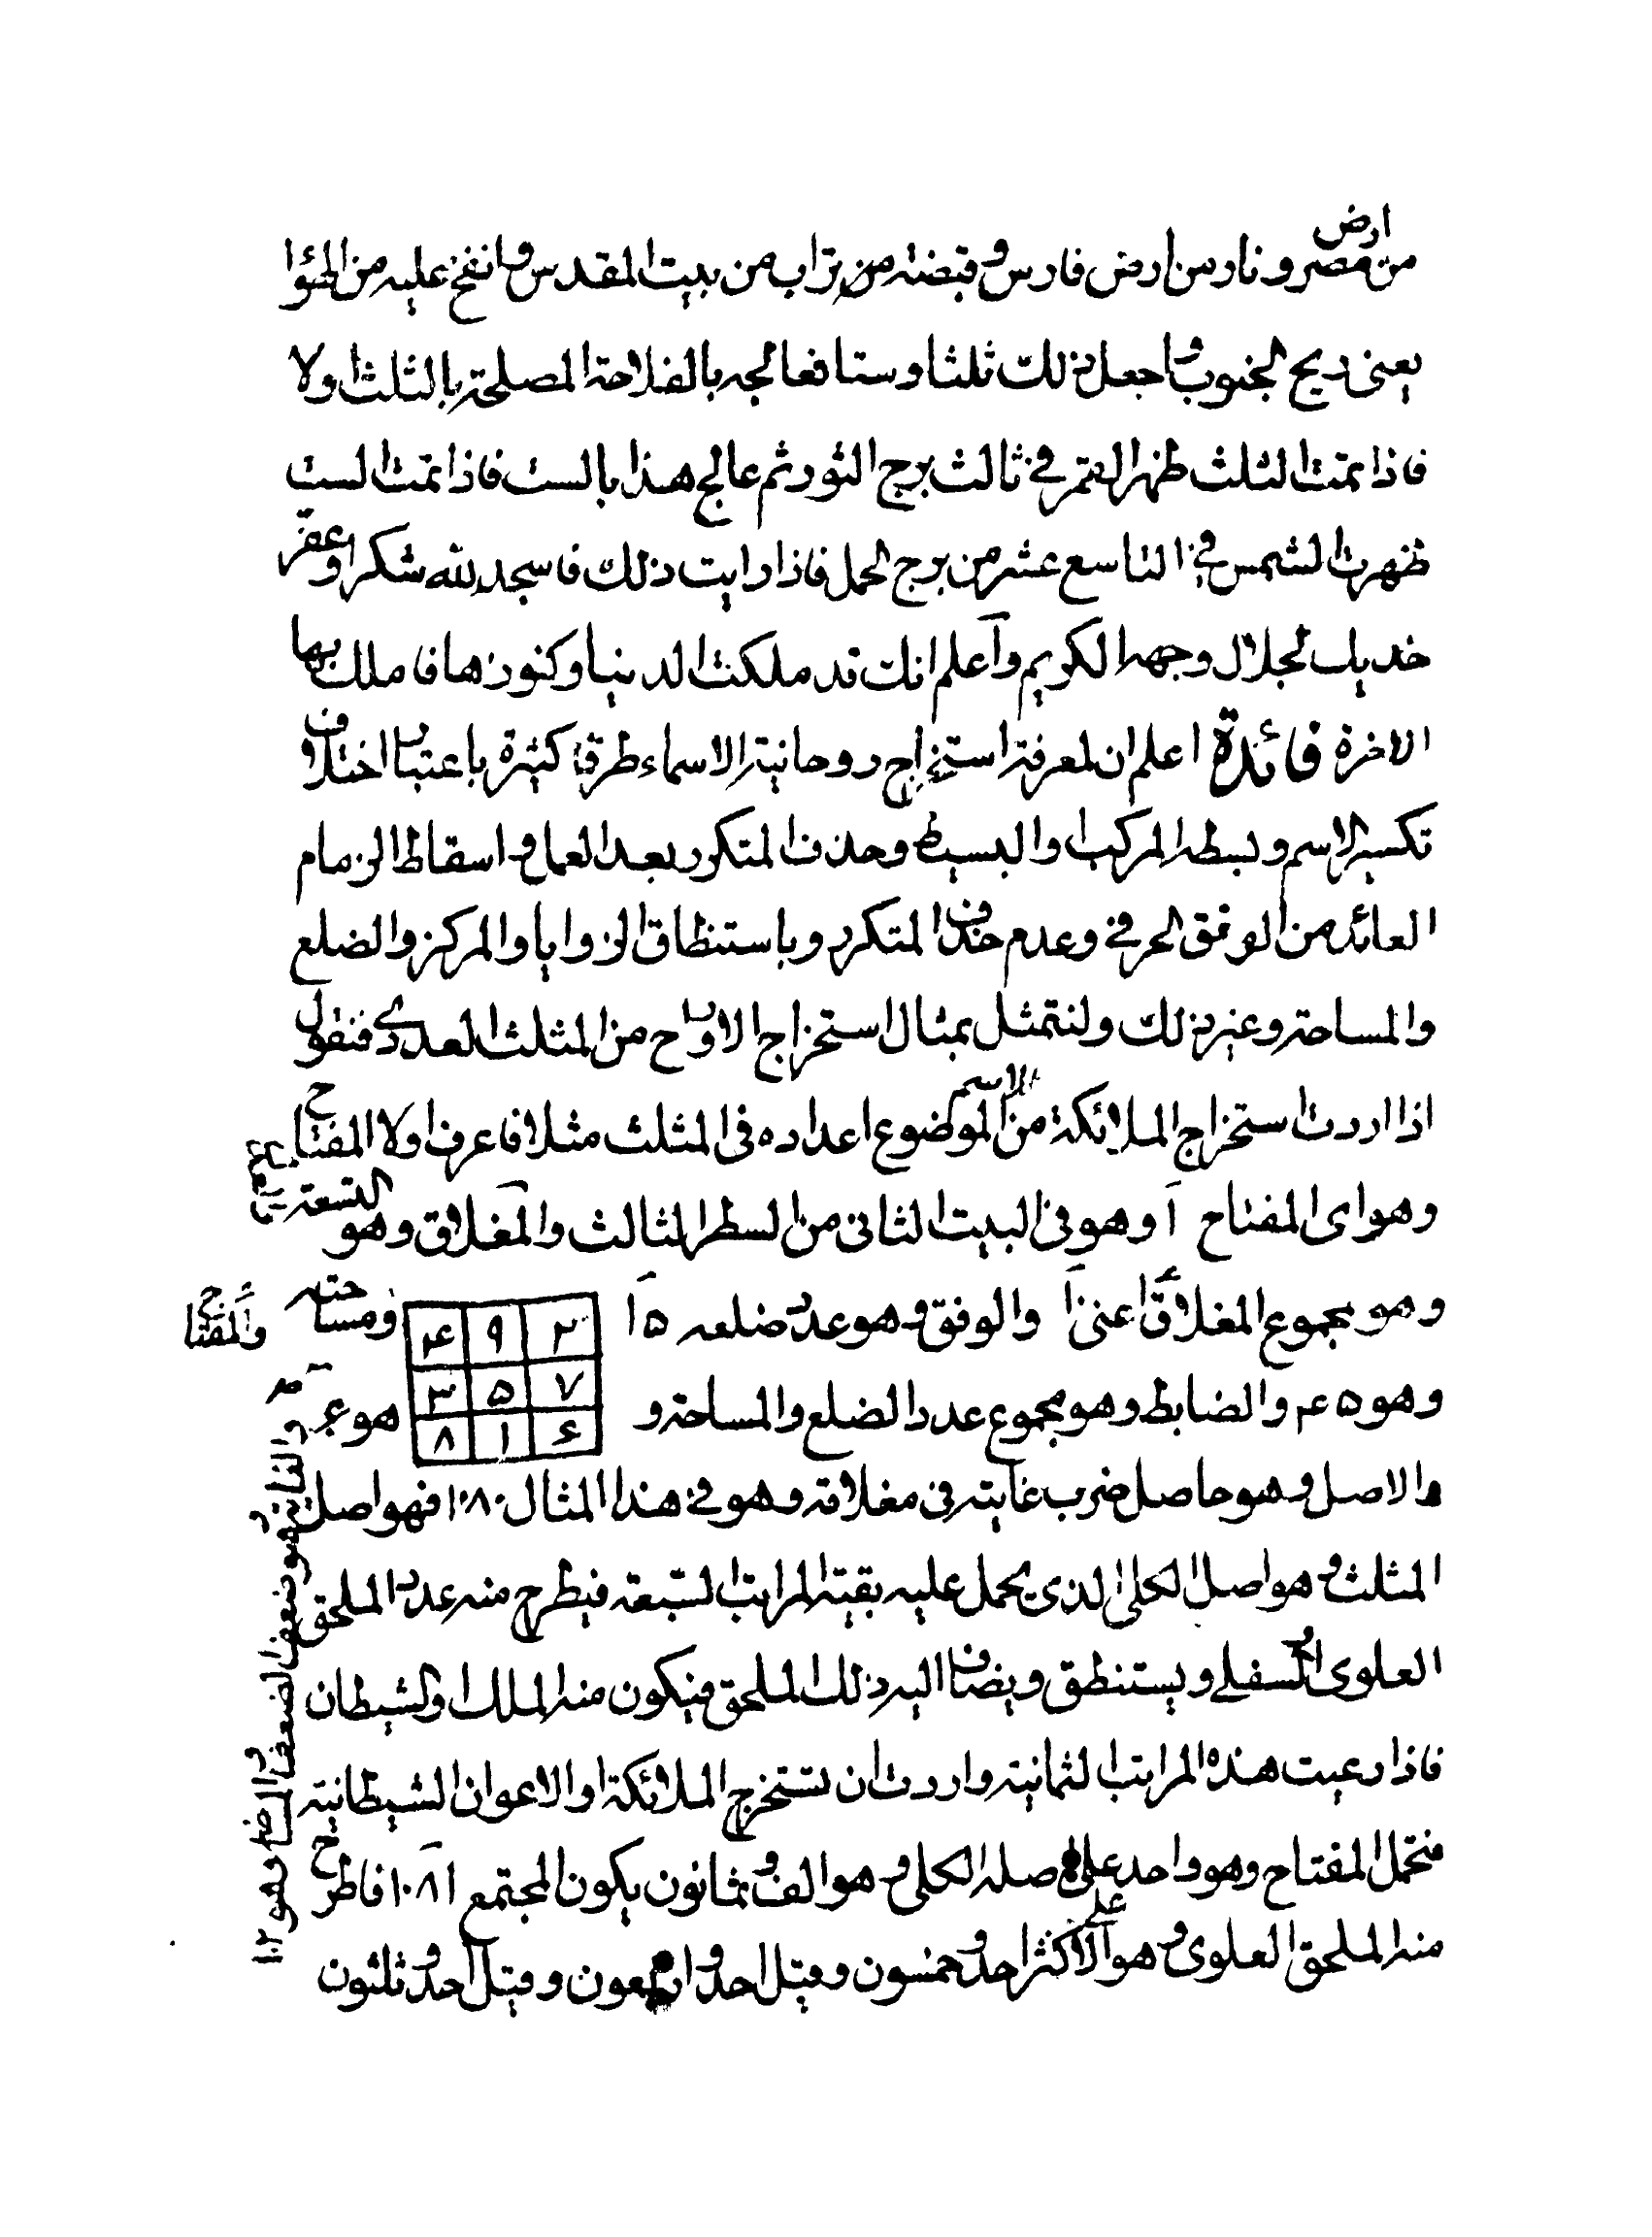 من ارض مصر و نار من ارض فارس و قبضة من تراب من بيت المقدس وانفخ عليه من الهوا
يعنى ريح الجنوب و اجعل ذلك ثلثا وستا فعالجه بالفلاحة المصلحة بالثلث اولا
فاذا تمت الثلث ظهر القمر فى ثالث برج الثور ثم عالج هذا بالست فاذا تمت الست
ظهرت الشمس فى التاسع عشر من برج الحمل فاذا رايت ذلك فاسجد لله شكرا وعفر
خديك لجلال وجهه الكريم واعلم انك قد ملكت الدنيا وكنوزها فاملك بها
الاخرة فائدة اعلم ان لمعرفة استخراج روحانية الاسماء طرقا كثيرة باعتبار اختلاف
تكسير الاسم وبسطه المركب والبسيط وحذف المتكرر بعد العمل و اسقاط الزمام
العائد من الوفق الحرفى وعدم حذف المتكرر وباستنطاق الزوايا والمركز والضلع
والمساحة وغير ذلك ولنتمثل بمثال استخراج الارواح من المثلث العددى فنقول
اذا اردت استخراج الملائكة من الاسم الموضوع اعداده فى المثلث مثلا فاعرف اولا المفتاح
وهو اى المفتاح ا وهو فى البيت الثانى من السطر الثالث والمغلاق وهو التسعة
وهو مجموع المغلاق اعنى والوفق و هو عدد ضلعه ١٥ ومساحته
والمفتاح
٢ ٩ ۴
٧ ۵ ٣
۶ ١ ٨
وهو ۴۵ والضابط وهو مجموع عدد الضلع والمساحة و هو
والاصل وهو حاصل ضرب غايته فى مغلاقه وهو فى هذا المثال ١٠٨٠ فهو اصل
المثلث و هو اصل الكلى الذى يحمل عليه بقية المراتب السبعة فيطرح منه عدد الملحق
العلوى او السفلى ويستنطق ويضاف اليه ذلك الملحق فيكون منه الملك او الشيطان
فاذا رعيت هذه المراتب الثمانية واردت ان تستخرج الملائكة او الاعوان الشيطانية
فتحمل المفتاح وهو واحد على اصله الكلى و هو الف و ثمانون يكون المجتمع ١٠٨١ فاطرح
منه الملحق العلوى و هو على الاكثر احد و خمسون وقيل احد و اربعون وقيل احد و ثلثون
والغاية وهو ضعف الضعف الضا